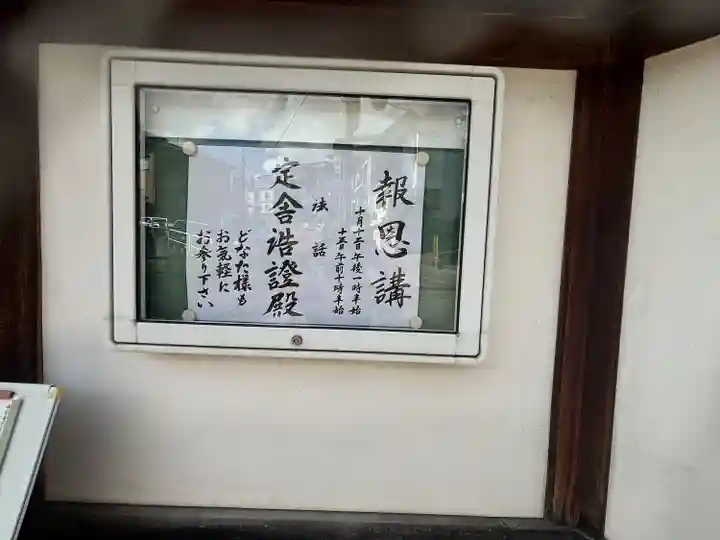 報恩講
十月十二日午後一時半始
十三日午前十時半始
法話
定舎浩證殿
どなた様も
お気軽に
お参り下さい